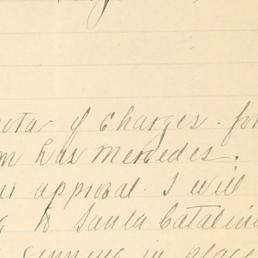 nota of charges. for
m Las Mercedes.
approval. I will
to Santa Catalina
running in place